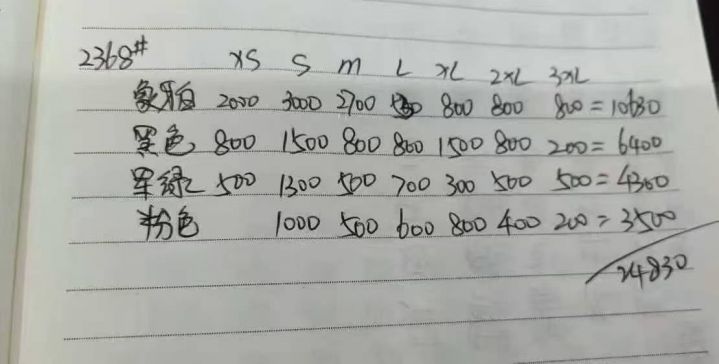 2368# XS S M L XL 2XL 3XL
象牙白 2000 3000 2700 800 800 800=10630
黑色 800 1500 800 800 1500 800 200=6400
军绿 500 1300 500 700 300 500 500=4300
粉色 1000 500 600 800 400 200=3500
24830